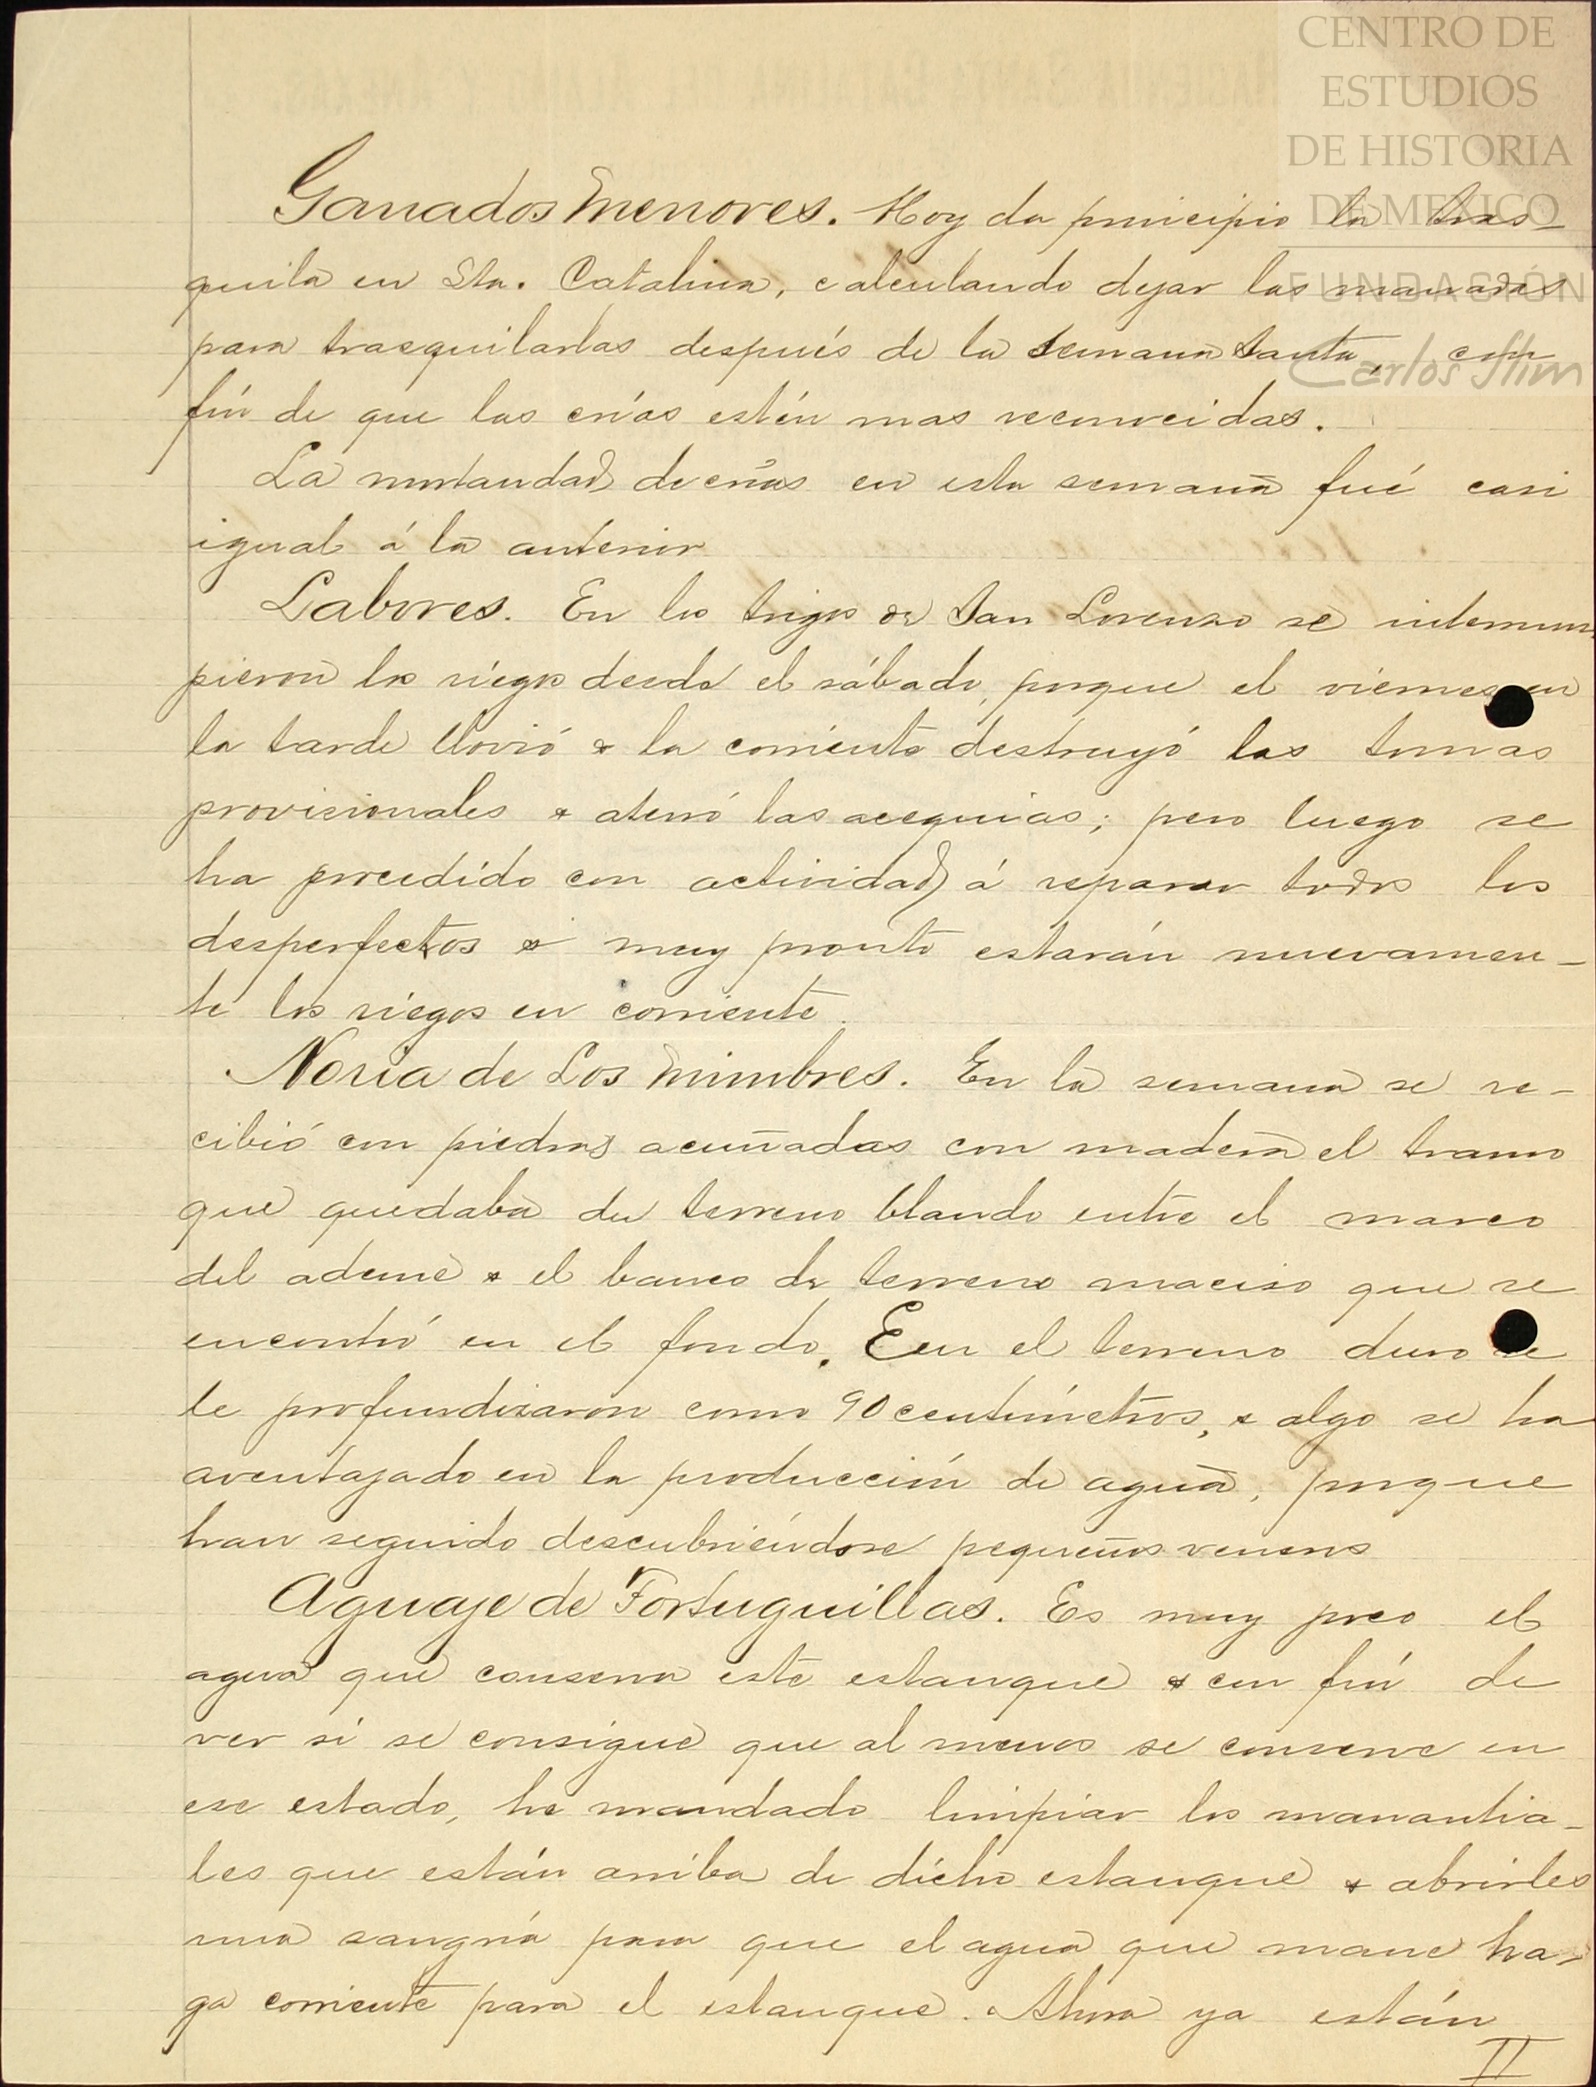 CENTRO DE
ESTUDIOS
DE HISTORIA
DE MEXICO
FUNDACIÓN
Carlos Slim
Ganados menores. Hoy da principio la tras-
quila en Sta. Catalina, calculando dejar las manadas
para trasquilarlas después de la semana santa, con
fin de que las crías estén mas reconocidas.
La mortandad de crías en esta semana fué casi
igual á la anterior
Labores. En los trigos de San Lorenzo se interrum
pieron los riegos desde el sábado, porque el viernes en
la tarde llovió & la corriente destruyó las tomas
provisionales & aterró las acequias; pero luego se
ha procedido con actividad á reparar todos los
desperfectos & muy pronto estarán nuevamen-
te los riegos en corriente.
Noria de Los Mimbres. En la semana se re-
cibió con piedras acuñadas con madera el tramo
que quedaba del terreno blando entre el marco
del ademe & el banco de terreno maciso que se
encontró en el fondo. Een el terreno duro se
le profundizaron como 90 centímetros, & algo se ha
aventajado en la producción de agua, porque
han seguido descubriéndose pequeños veneros
Aguaje de Tortuguillas. Es muy poco el
agua que conserva este estanque & con fin de
ver si se consigue que al menos se conserve en
ese estado, he mandado limpiar los manantia-
les que están arriba de dicho estanque & abrirles
una sangría para que el agua que mane ha-
ga corriente para el estanque. Ahora ya están
II